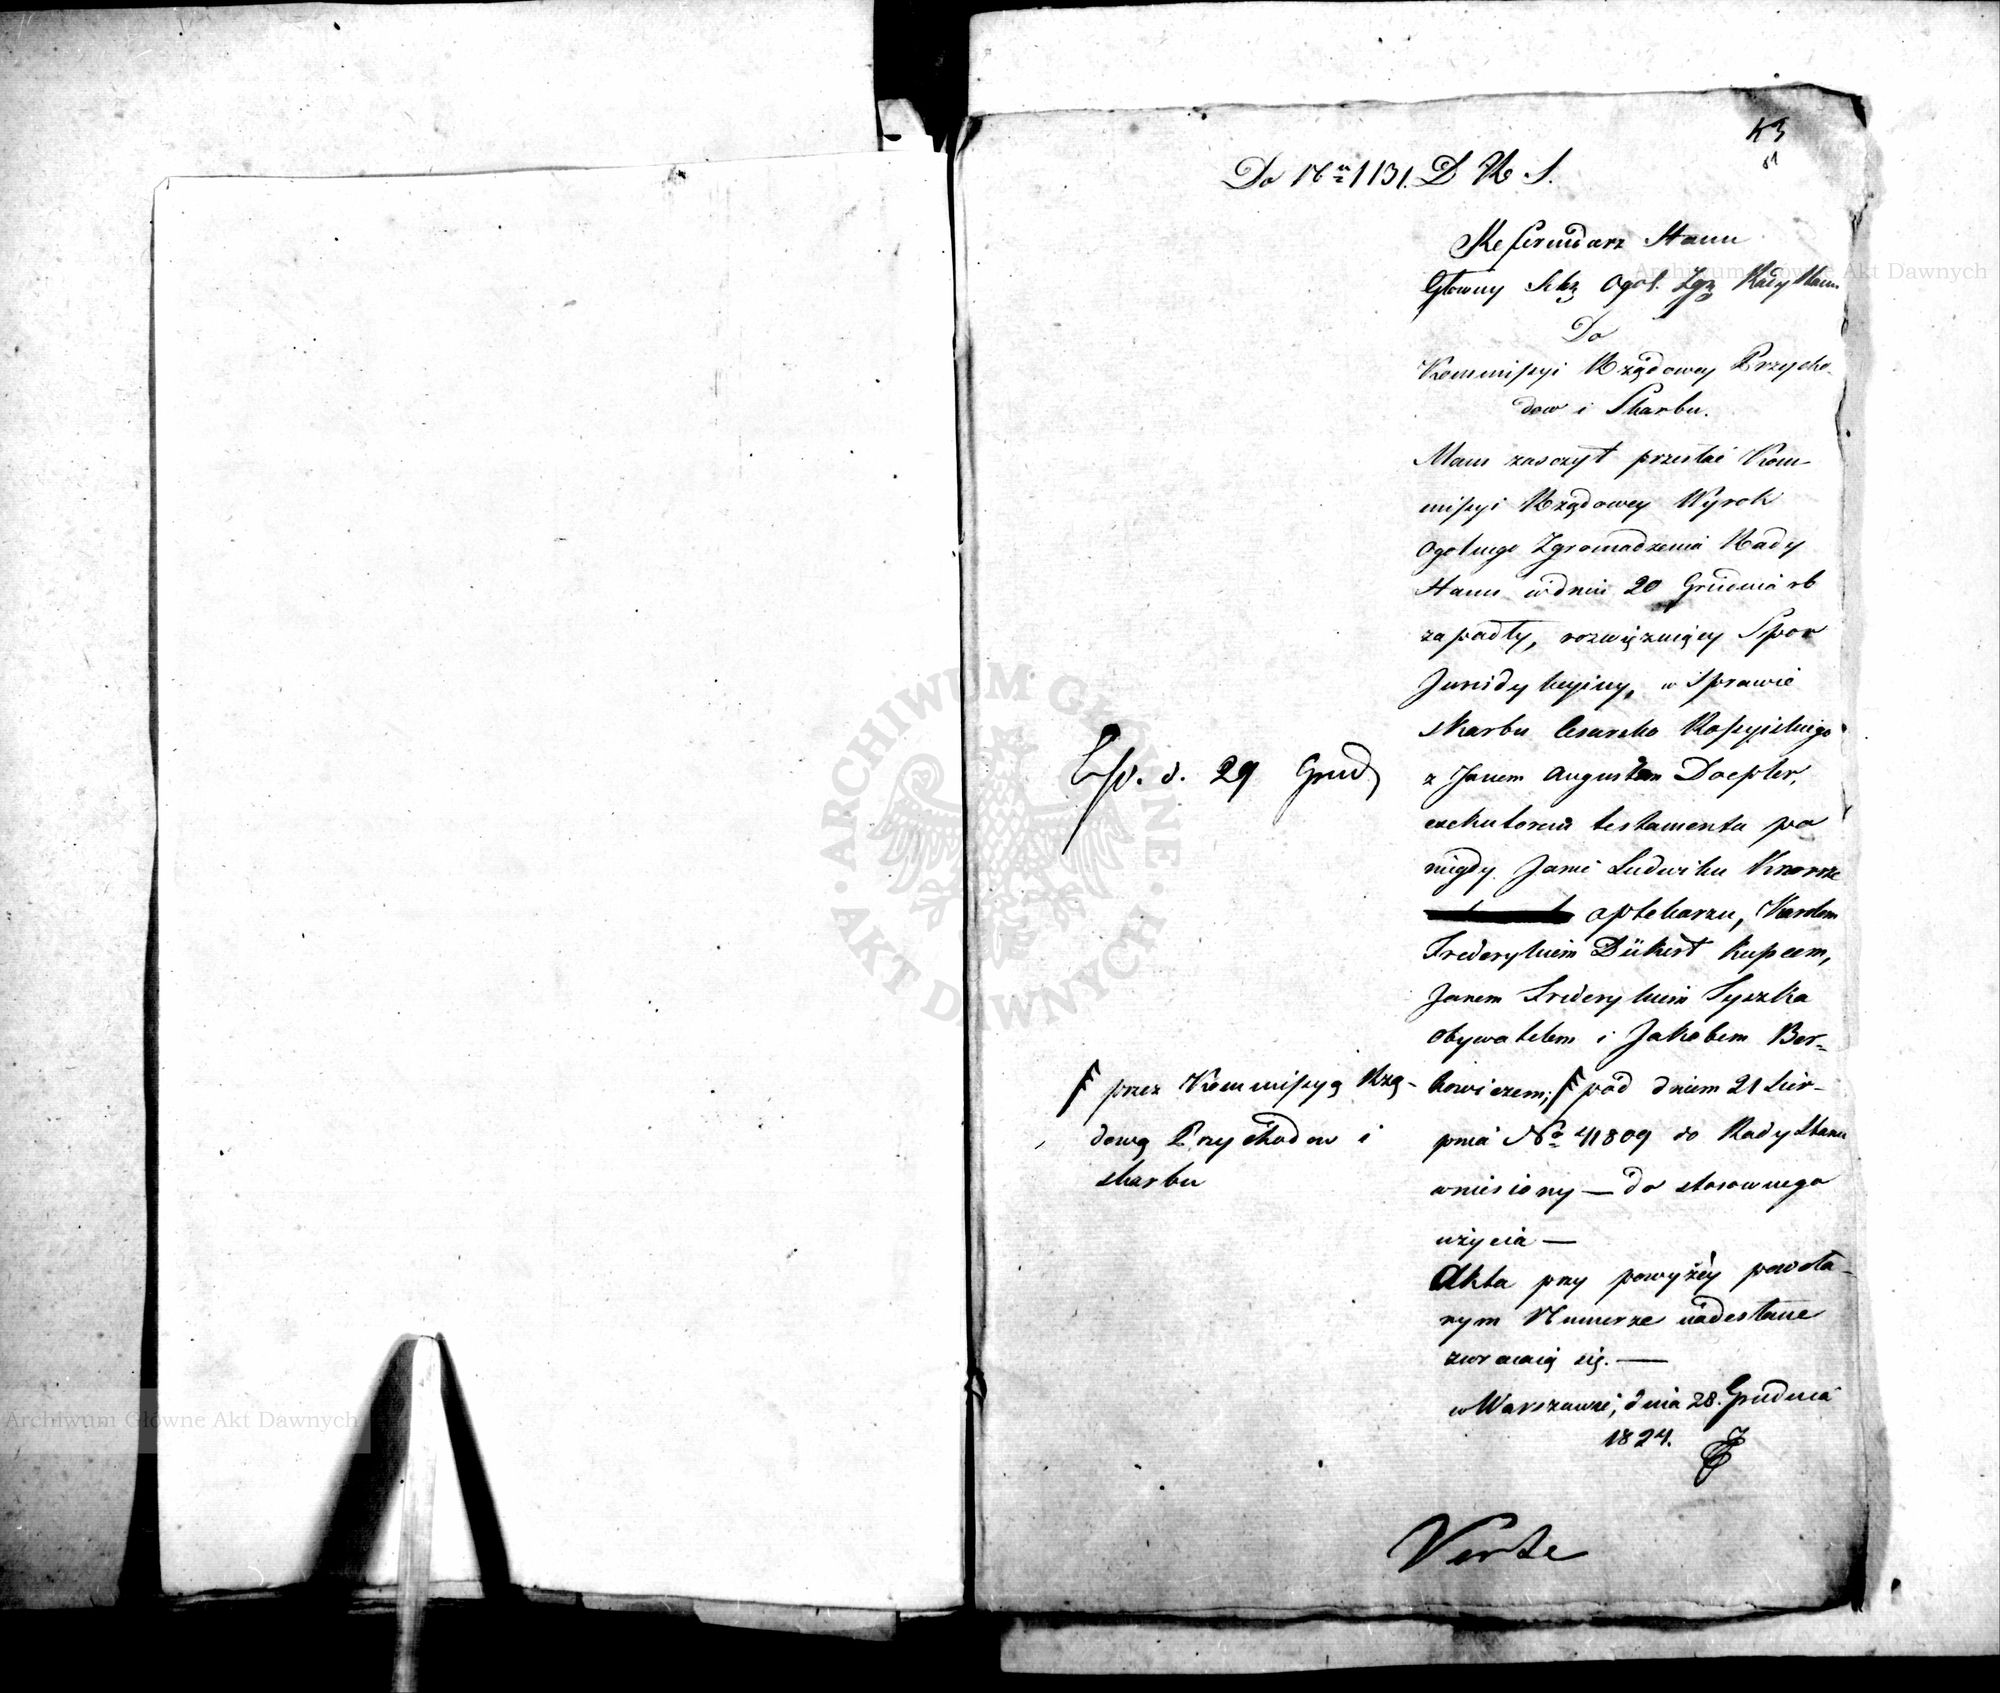 43
81
Do Nru 1131. D R S.
Referendarz Stanu
Główny Sekz Ogól. Zgz Rady Stanu
Do
Kommissyi Rządowey Przycho-
dow i Skarbu.
Mam zaszczyt przesłać Kom-
missyi Rządowey Wyrok
Ogolnego Zgromadzenia Rady
Stanu w dniu 20 Grudnia rb
zapadły, rozwięzuiący Spor
Jurisdykcyiny, w Sprawie
skarbu Cesarsko Rossyiskiego
z Janem Augustem Doepler,
exekutorem testamentu po
niegdy Janie Ludwiku Knorre
aptekarzu, Karolem
Frederykiem Dükert kupcem,
Janem Frederykiem Tyszka
Obywatelem i Jakobem Ber-
kowiczem; F pod dniem 21 Sier-
pnia No 41809 do Rady Stanu
wniesiony — do stosownego
użycia —
Akta przy powyżéy powoła-
nym Numerze nadesłane
zwracaią się. —
w Warszawie, dnia 28. Grudnia
1824.
Exp. d. 29 Grud
F przez Kommissyą Rzą-
dową Przychodow i
skarbu
Verte
ARCHIWUM GŁÓWNE
AKT DAWNYCH
Archiwum Główne Akt Dawnych
Archiwum Główne Akt Dawnych